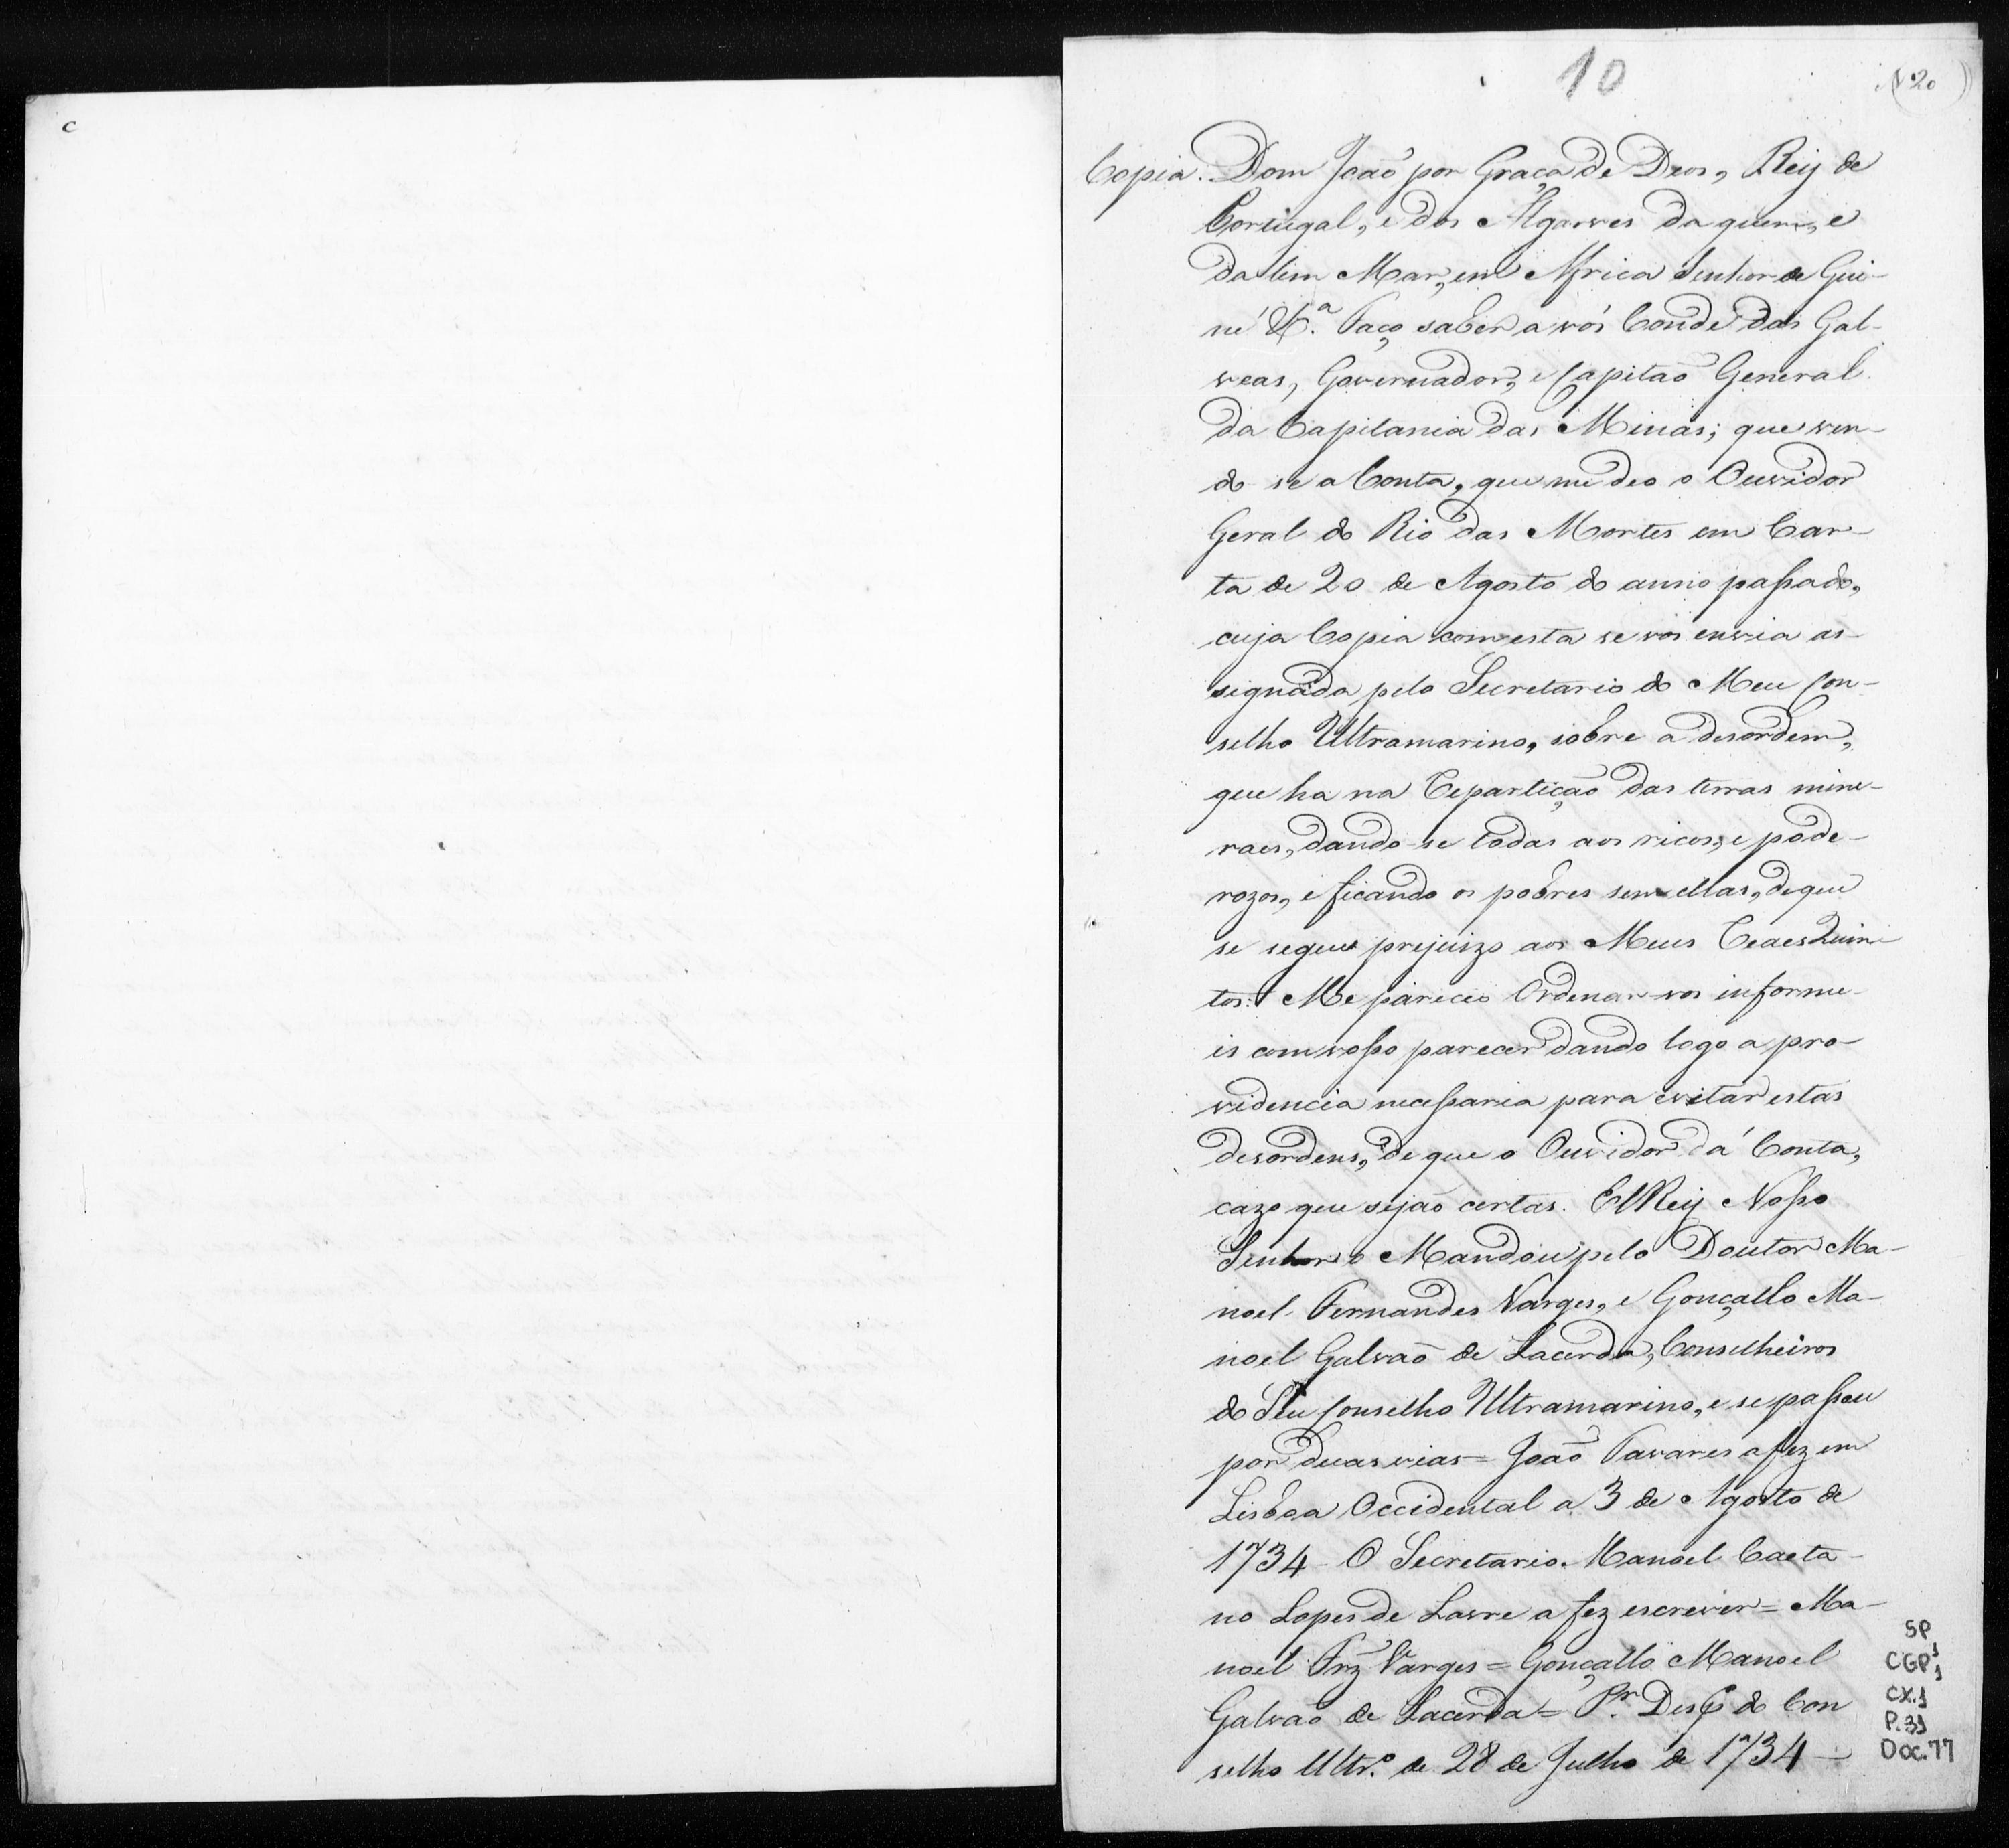 10
N 20
Copia. Dom João por Graça de Deos, Rey de
Portugal, e dos Algarves da quem, e
da lem Mar, em Africa Senhor de Gui-
né &.ª Faço saber a vós Conde das Gal-
veas, Governador, e Capitão General
da Capitania das Minas; que ven-
do se a Conta, que me deo o Ouvidor
Geral do Rio das Mortes em Car-
ta de 20 de Agosto do anno paſsado,
cuja Copia com esta se vos envia as-
signada pelo Secretario do Meu Con-
selho Ultramarino, sobre a desordem,
que ha na Repartição das terras mine-
raes, dando-se todas aos ricos, e pode-
rozos, e ficando os pobres sem ellas, de que
se segue prejuizo aos Meus Reaes Quin-
tos: Me pareceo Ordenar-vos informe-
is com voſso parecer dando logo a pro-
videncia neceſsaria para evitar estas
desordens, de que o Ouvidor dá Conta,
cazo que sejão certas. ElRey Noſso
Senhor o Mandou pelo Doutor Ma-
noel Fernandes Varges, e Gonçallo Ma-
noel Galvão de Lacerda, Conselheiros
do Seu Conselho Ultramarino, e se paſsou
por duas vias = João Tavares a fez em
Lisboa Occidental a 3 de Agosto de
1734 - O Secretario Manoel Caeta-
no Lopes de Lavre a fez escrever = Ma-
noel Frz Varges = Gonçallo Manoel
Galvão de Lacerda = Pr. Desp do Con
selho Ultr.º de 28 de Julho de 1734 -
SP,
CGP,
CX.1
P.31
Doc.77